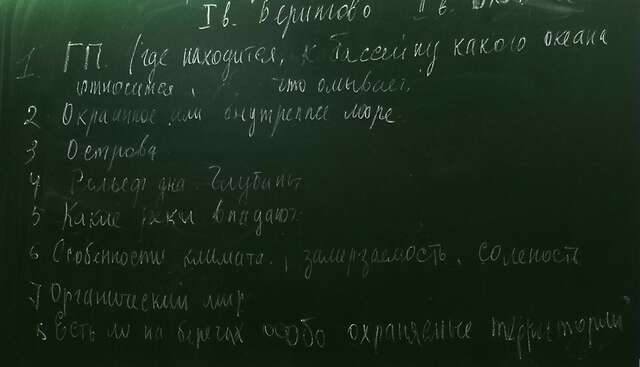 I в. Берингово II в. Охот
1 ГП. (где находится, к бассейну какого океана
относится, что омывает)
2 Окраинное или внутреннее море.
3 Острова
4 Рельеф дна. Глубины
5 Какие реки впадают
6 Особенности климата, замерзаемость, соленость
7 Органический мир
8 Есть ли на берегах особо охраняемые территории